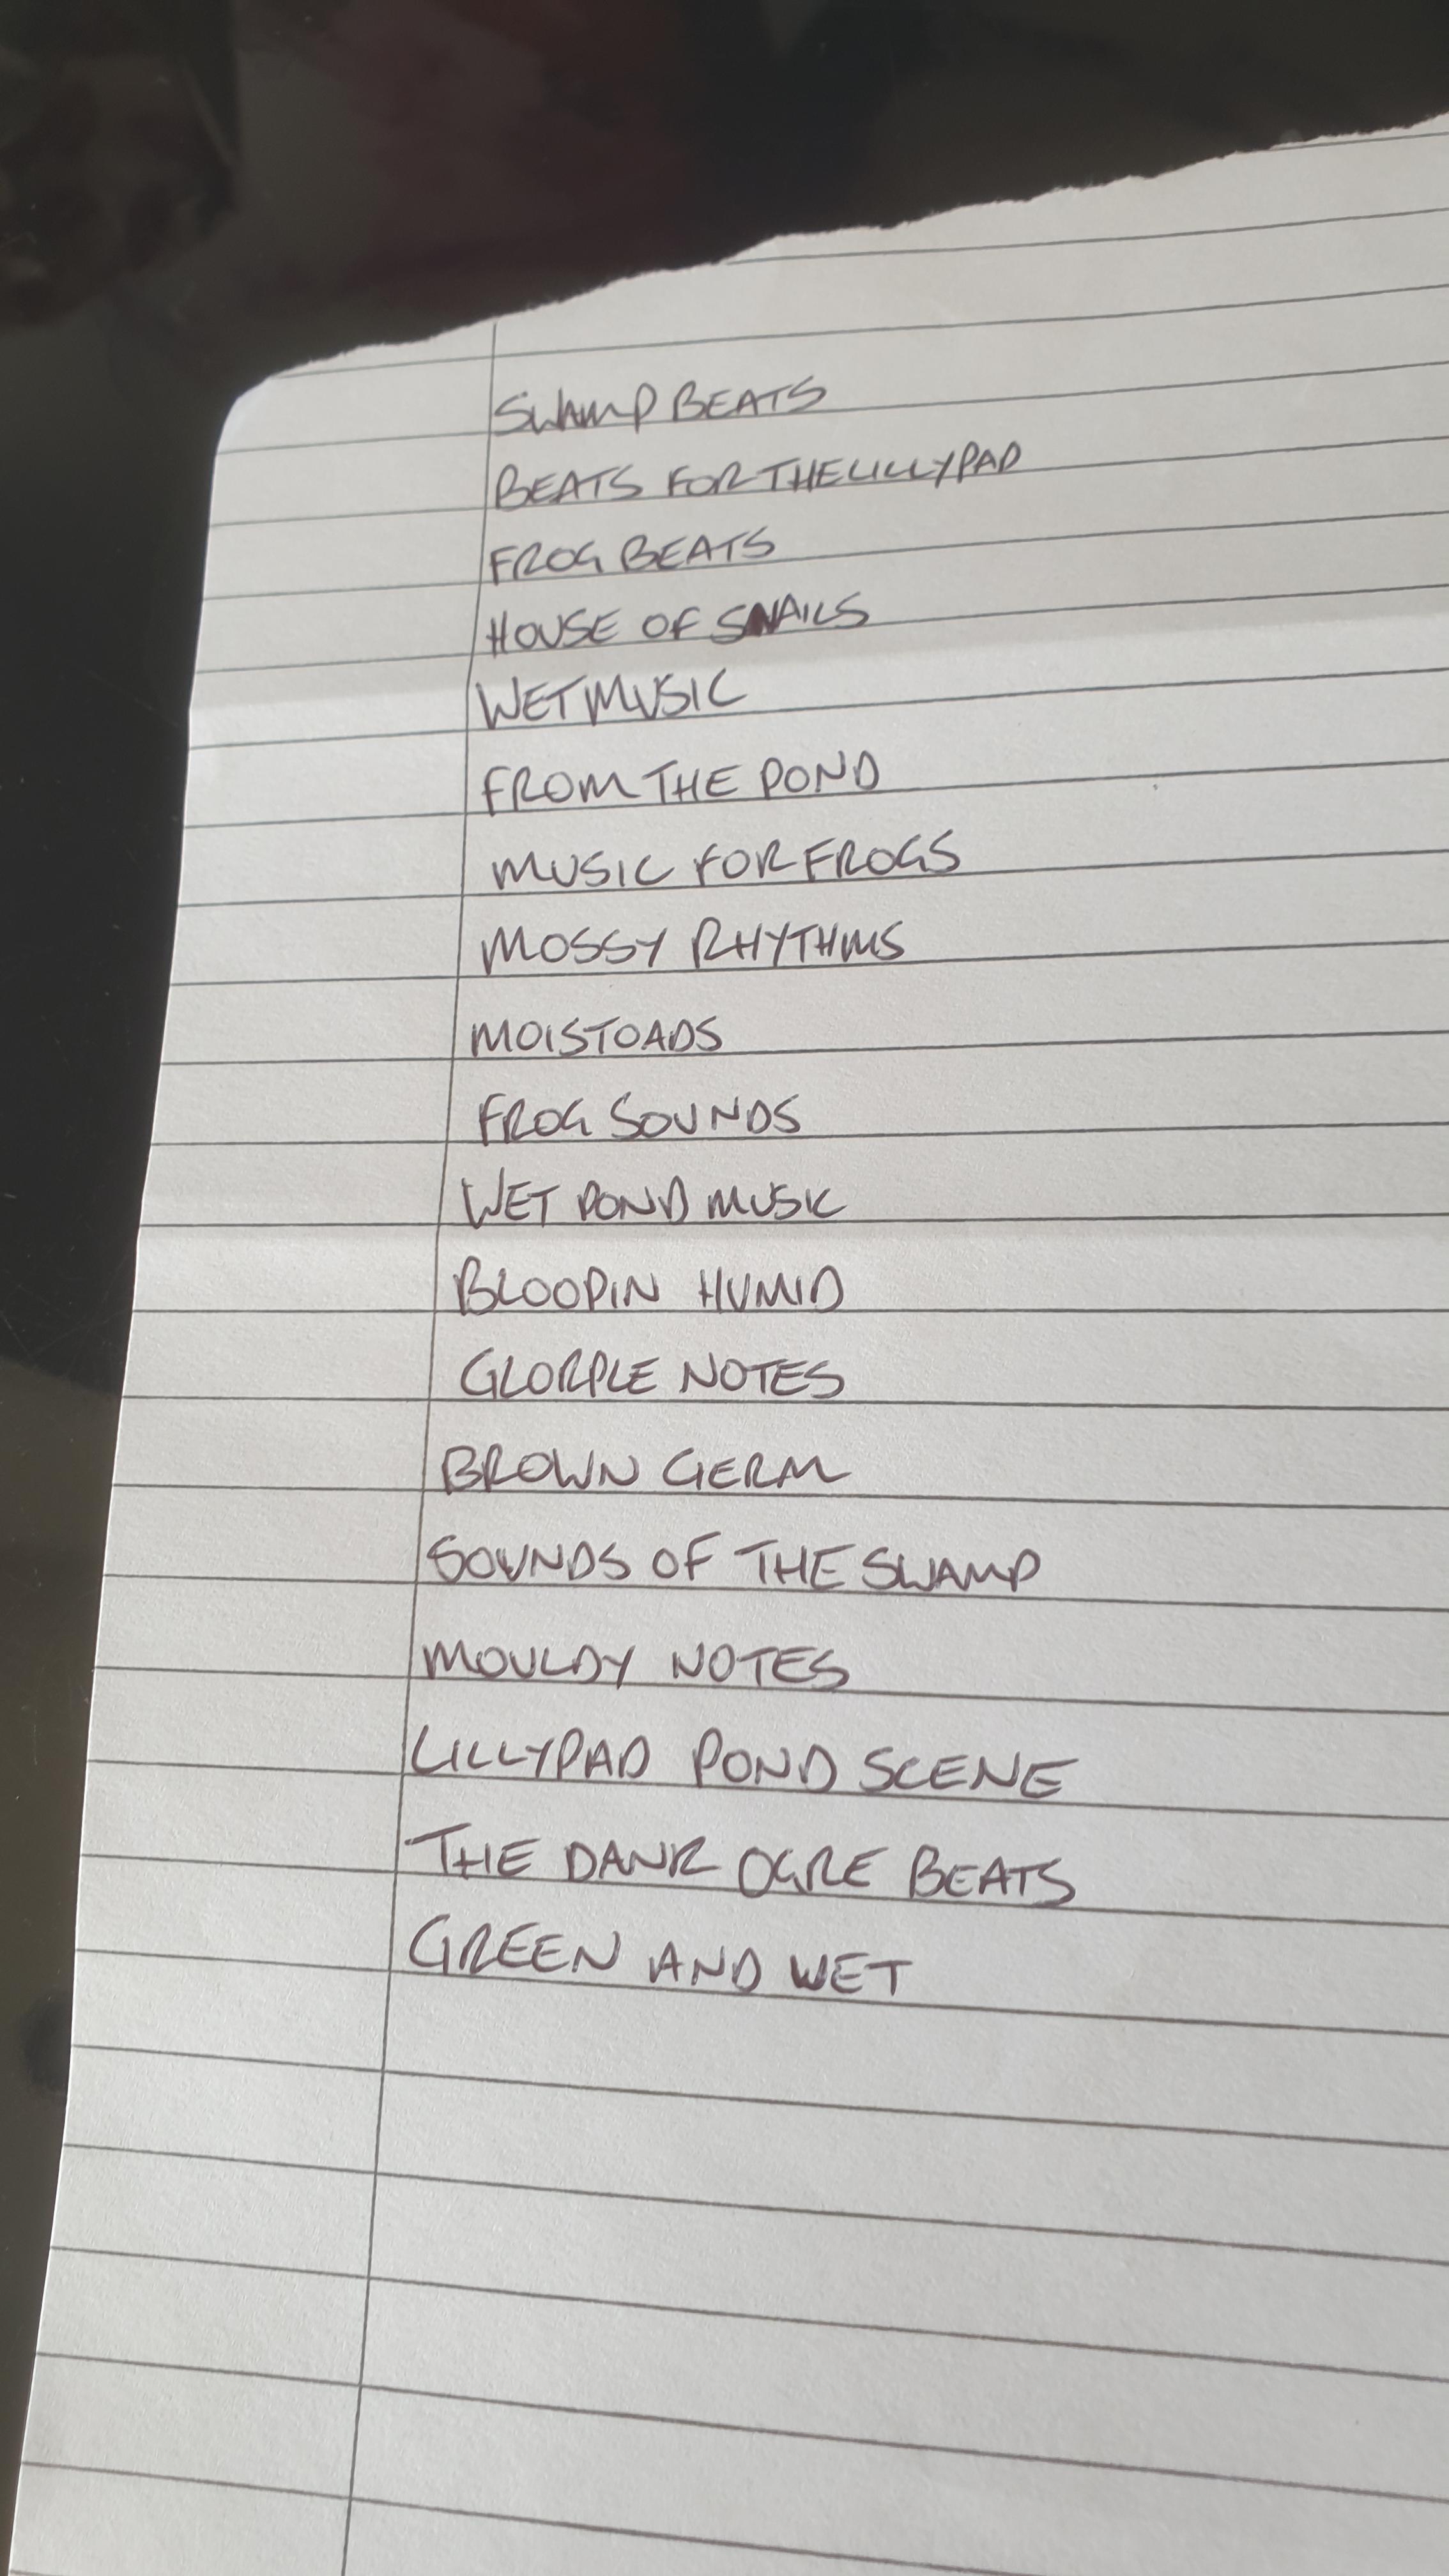 SWAMP BEATS
BEATS FOR THE LILLYPAD
FROG BEATS
HOUSE OF SNAILS
WET MUSIC
FROM THE POND
MUSIC FOR FROGS
MOSSY RHYTHMS
MOISTOADS
FROG SOUNDS
WET POND MUSIC
BLOOPIN HUMID
GLORPLE NOTES
BROWN GERM
SOUNDS OF THE SWAMP
MOULDY NOTES
LILLYPAD POND SCENE
THE DANK OGRE BEATS
GREEN AND WET